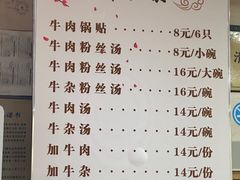 牛肉锅贴......8元/6只
牛肉粉丝汤......8元/小碗
牛肉粉丝汤......16元/大碗
牛杂粉丝汤......16元/碗
牛肉汤......14元/碗
牛杂汤......14元/碗
加牛肉......14元/份
加牛杂......14元/份